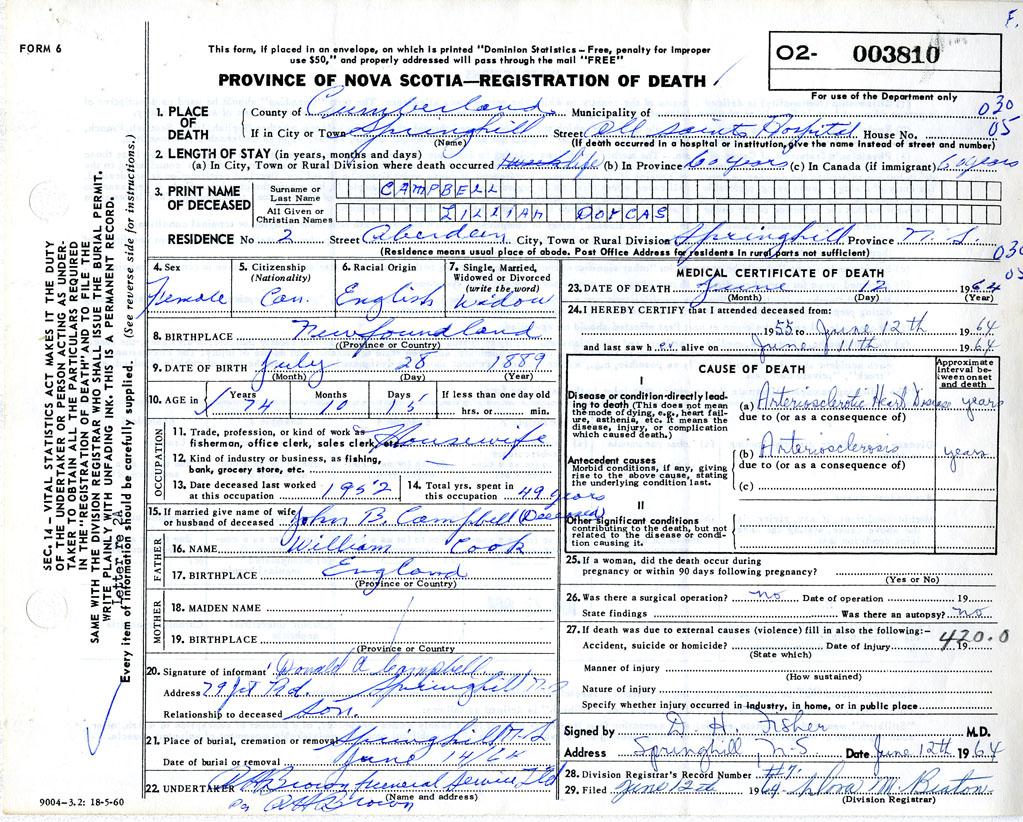 F.
FORM 6
This form, if placed in an envelope, on which is printed "Dominion Statistics – Free, penalty for improper
use $50," and properly addressed will pass through the mail "FREE"
02- 003810
For use of the Department only
PROVINCE OF NOVA SCOTIA—REGISTRATION OF DEATH
030
05
1. PLACE OF DEATH
County of Cumberland Municipality of
If in City or Town Springhill Street All Saints Hospital House No.
(Name) (If death occurred in a hospital or institution, give the name instead of street and number)
2. LENGTH OF STAY (in years, months and days)
(a) In City, Town or Rural Division where death occurred life (b) In Province 60 years (c) In Canada (if immigrant) 60 years
3. PRINT NAME OF DECEASED
Surname or Last Name CAMPBELL
All Given or Christian Names LILLIAN DORCAS
RESIDENCE No 2 Street Aberdeen City, Town or Rural Division Springhill Province N. S.
(Residence means usual place of abode. Post Office Address for residents in rural parts not sufficient)
030
05
4. Sex Female
5. Citizenship (Nationality) Can.
6. Racial Origin English
7. Single, Married, Widowed or Divorced (write the word) Widow
8. BIRTHPLACE Newfoundland
(Province or Country)
9. DATE OF BIRTH July 28 1889
(Month) (Day) (Year)
10. AGE in Years 74 Months 10 Days 15 If less than one day old hrs. or min.
OCCUPATION
11. Trade, profession, or kind of work as fisherman, office clerk, sales clerk, etc. Housewife
12. Kind of industry or business, as fishing, bank, grocery store, etc. —
13. Date deceased last worked at this occupation 1952
14. Total yrs. spent in this occupation 49 years
15. If married give name of wife or husband of deceased John B. Campbell (Deceased)
FATHER
16. NAME William Cook
17. BIRTHPLACE England
(Province or Country)
MOTHER
18. MAIDEN NAME
19. BIRTHPLACE
(Province or Country)
20. Signature of informant Donald A Campbell
Address Rd. Springhill N.S
Relationship to deceased Son.
21. Place of burial, cremation or removal Springhill N-S
Date of burial or removal June 14/64
22. UNDERTAKER Brown Funeral Service Ltd
(Name and address)
Brown
9004–3.2: 18-5-60
MEDICAL CERTIFICATE OF DEATH
23. DATE OF DEATH June 12 1964
(Month) (Day) (Year)
24. I HEREBY CERTIFY that I attended deceased from:
1955 to June 12th 1964
and last saw her alive on June 11th 1964
CAUSE OF DEATH
Approximate interval between onset and death
I
Disease or condition directly leading to death (This does not mean the mode of dying, e.g., heart failure, asthenia, etc. It means the disease, injury, or complication which caused death.)
(a) Arteriosclerotic Heart Disease years
due to (or as a consequence of)
Antecedent causes
Morbid conditions, if any, giving rise to the above cause, stating the underlying condition last.
(b) Arteriosclerosis years
due to (or as a consequence of)
(c)
II
Other significant conditions
contributing to the death, but not related to the disease or condition causing it.
25. If a woman, did the death occur during
pregnancy or within 90 days following pregnancy?
(Yes or No)
26. Was there a surgical operation? no Date of operation 19
State findings Was there an autopsy? no
27. If death was due to external causes (violence) fill in also the following:—
420.0
Accident, suicide or homicide? Date of injury 19
(State which)
Manner of injury
(How sustained)
Nature of injury
Specify whether injury occurred in industry, in home, or in public place
Signed by D. H. Fisher M.D.
Address Springhill N-S Date June 12th 1964
28. Division Registrar's Record Number #7.
29. Filed June 12th 1964 M. Beaton
(Division Registrar)
SEC. 14 – VITAL STATISTICS ACT MAKES IT THE DUTY
OF THE UNDERTAKER OR PERSON ACTING AS UNDER-
TAKER TO OBTAIN ALL THE PARTICULARS REQUIRED
IN THE "REGISTRATION OF DEATH" AND TO FILE THE
SAME WITH THE DIVISION REGISTRAR WHO SHALL ISSUE THE BURIAL PERMIT.
WRITE PLAINLY WITH UNFADING INK. THIS IS A PERMANENT RECORD.
Letter re 2A
Every item of information should be carefully supplied. (See reverse side for instructions.)